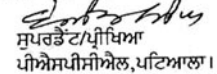 ਸੁਪਰਡੈਂਟ/ਪ੍ਰੀਖਿਆ
ਪੀਐਸਪੀਸੀਐਲ,ਪਟਿਆਲਾ।